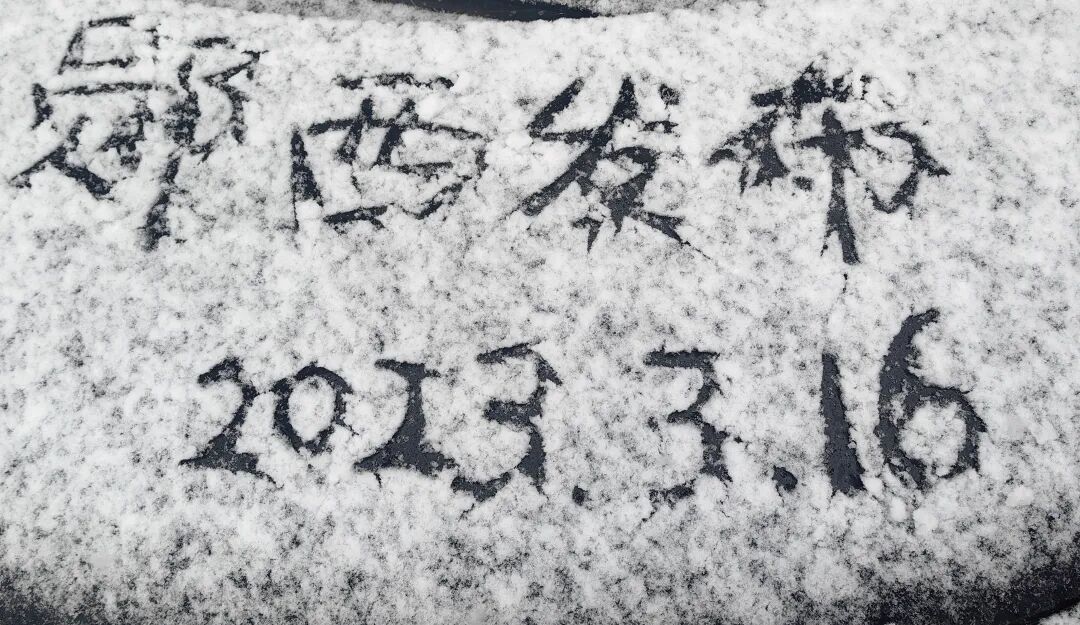 鄂西发布
2023.3.16